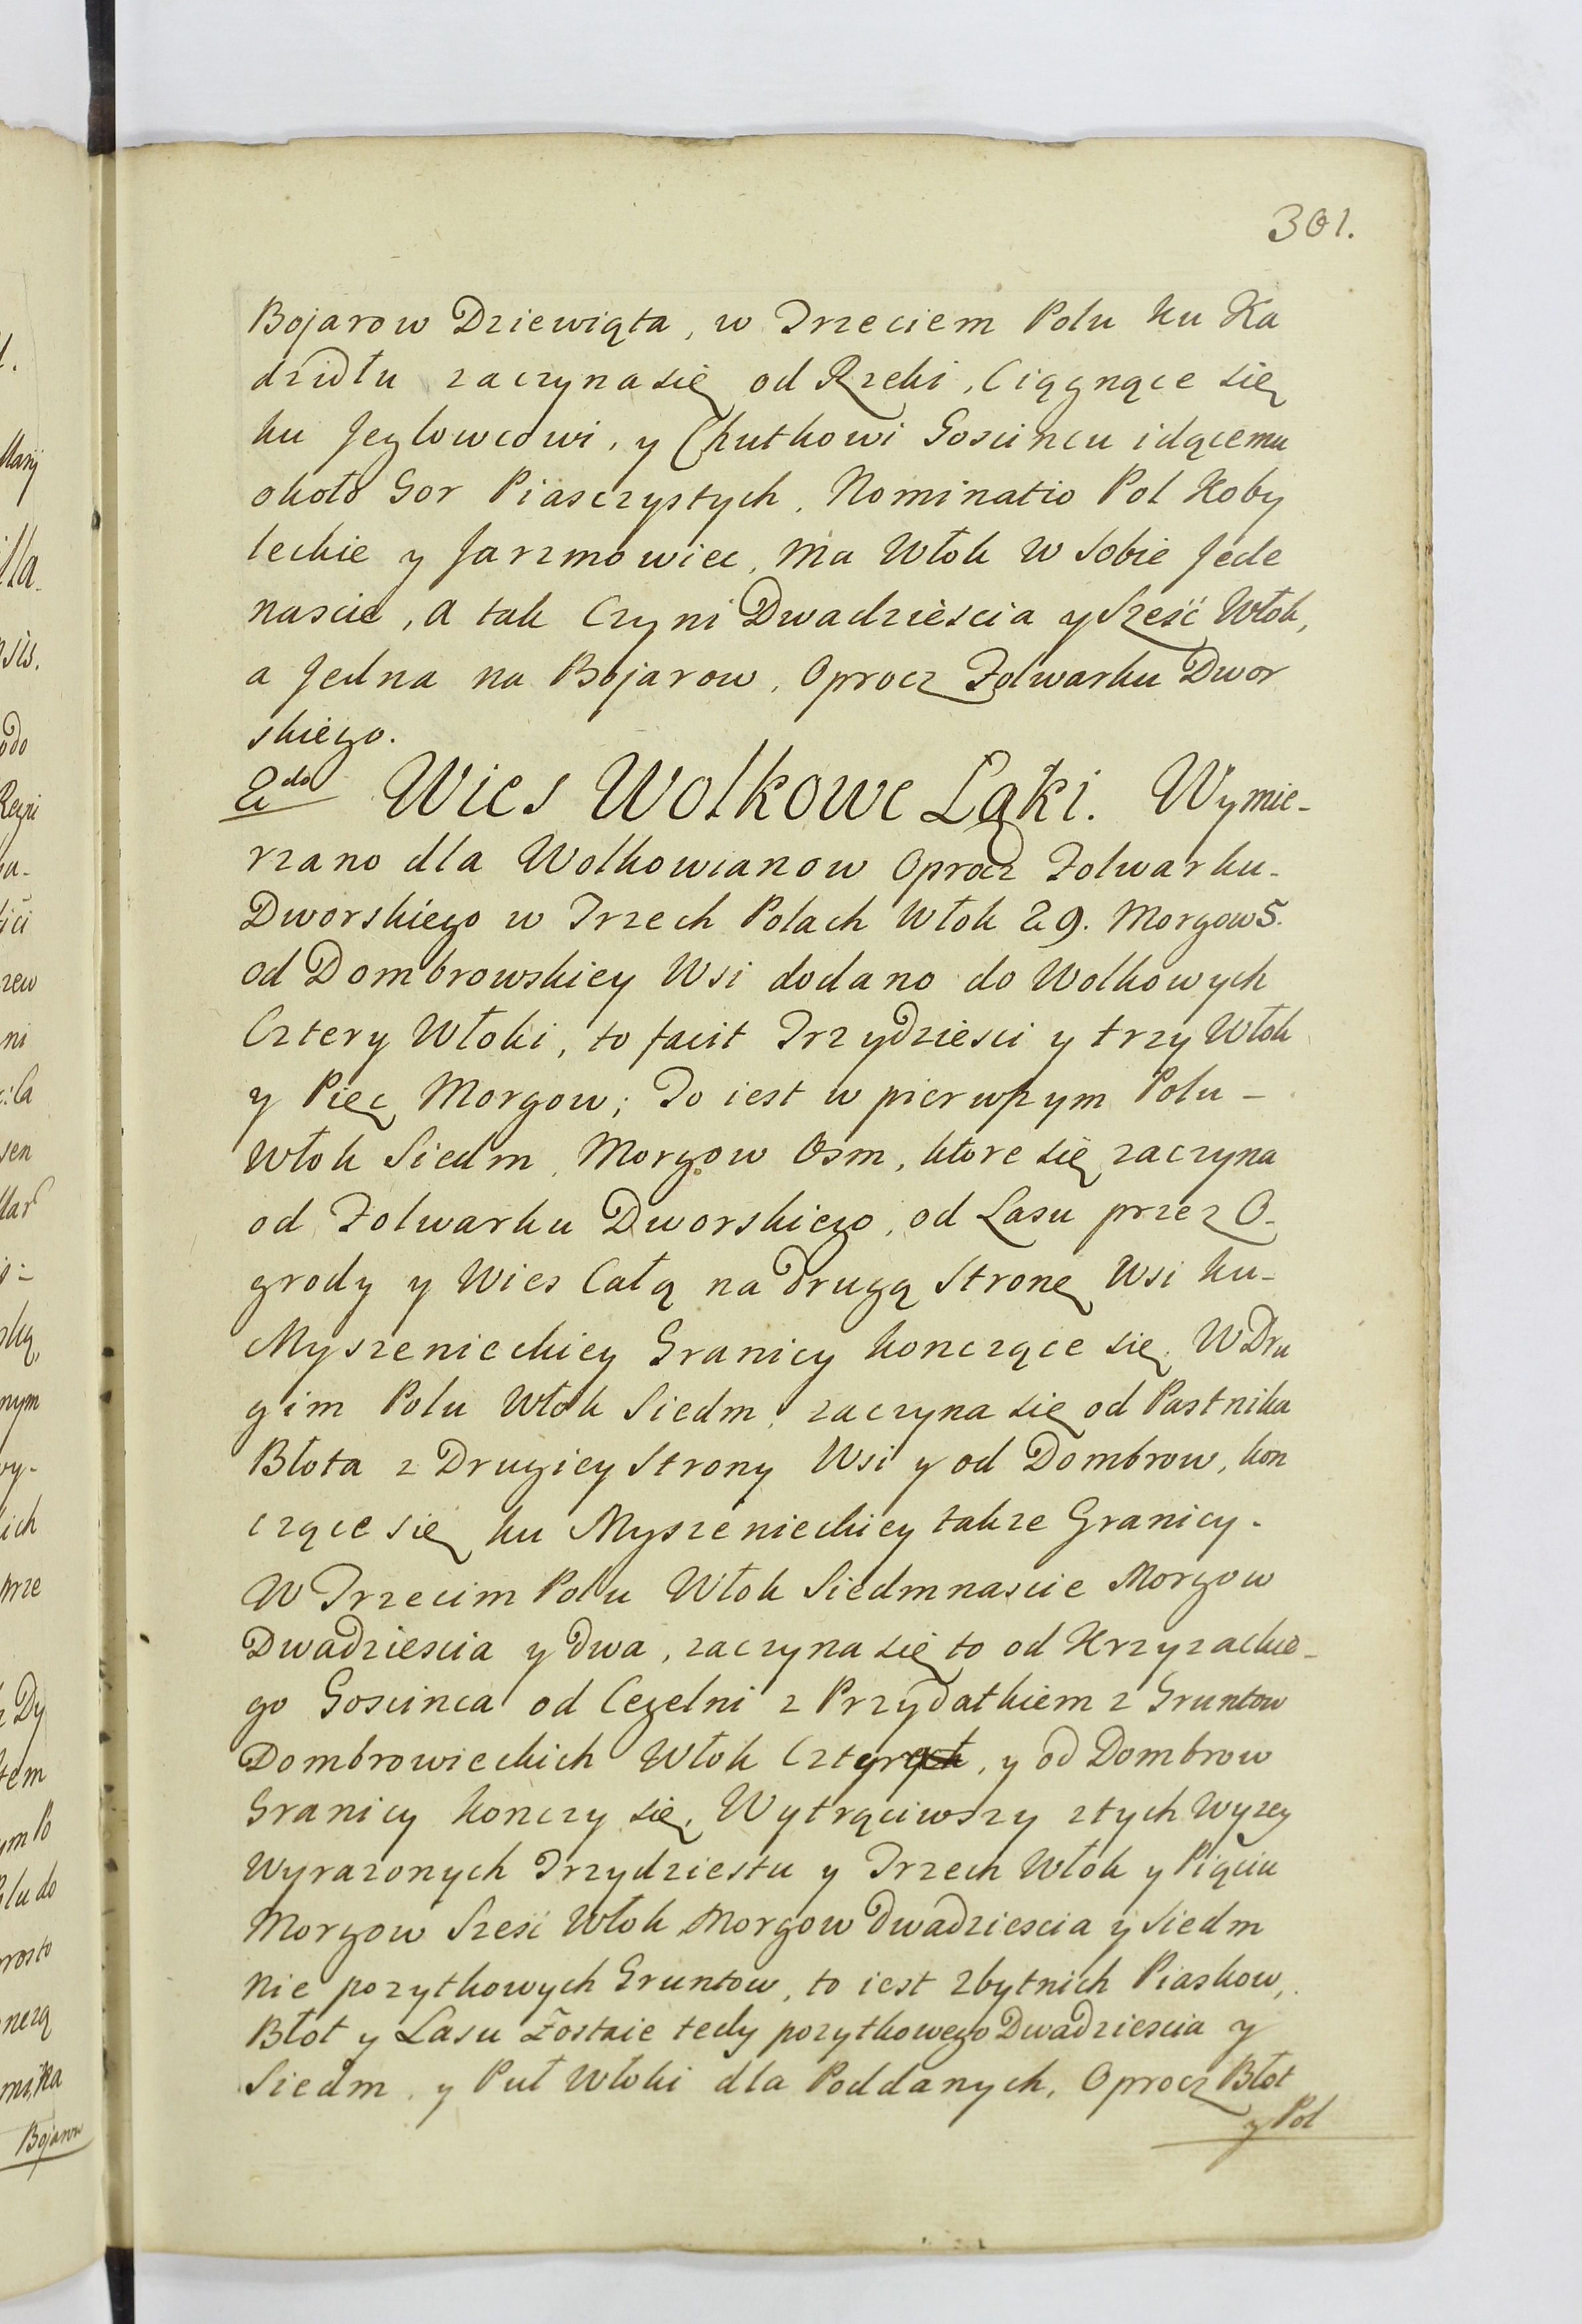 301.
Bojarow Dziewiąta, w Trzeciem Polu ku Ka
dzidłu zaczyna się od Rzeki, Ciągnące się
ku Jeglowcowi, y Chutkowi Goscincu idącemu
około Gor Piasczystych, Nominatio Pol Koby
leckie y Jarzmowiec, ma Włok w Sobie Jede
nascie, a tak Czyni Dwadziescia y Sześć Włok,
a Jedna na Bojarow, Oprocz Folwarku Dwor
skiego.
2do Wies Wolkowe Łąki. Wymie-
rzano dla Wolkowianow Oprocz Folwarku-
Dworskiego w Trzech Polach Włok 29. Morgow 5.
od Dombrowskiey Wsi dodano do Wolkowych
Cztery Włoki, to facit Trzydziesci y trzy Włok
y Pięc Morgow; To iest w pierwszym Polu -
Włok Siedm, Morgow Osm, ktore się zaczyna
od Folwarku Dworskiego, od Lasu przez O-
grody y Wies Całą na Drugą Stronę Wsi ku-
Myszenieckiey Granicy konczące się. W Dru
gim Polu Włok Siedm, zaczyna się od Pastnika
Błota z Drugiey Strony Wsi y od Dombrow, kon
czące się ku Myszenieckiey takze Granicy.
W Trzecim Polu Włok Siedmnascie Morgow
Dwadziescia y dwa, zaczyna się to od Krzyzackie-
go Goscinca od Cegelni z Przydatkiem z Gruntow
Dombrowieckich Włok Czterych, y od Dombrow
Granicy konczy się, Wytrąciwszy z tych Wyzey
Wyrazonych Trzydziestu y Trzech Włok y Piąciu
Morgow Sześć Włok Morgow Dwadziescia y Siedm
Nie pozytkowych Gruntow, to iest Zbytnich Piaskow,
Błot y Lasu Zostaie tedy pozytkowego Dwadziescia y
Siedm, y Puł Włoki dla Poddanych, Oprocz Błot
y Pol